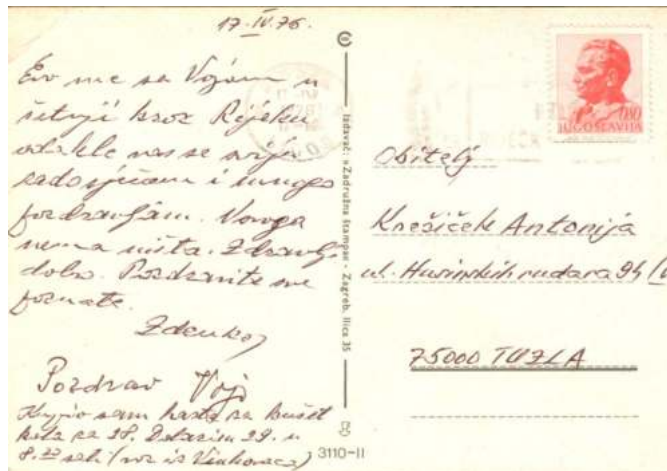 17. IV. 76.
Evo me sa Vojom u
šetnji kroz Rijeku
odakle vas se svih
rado sjećam i mnogo
pozdravljam. Novoga
nema ništa. Zdravlje
dobro. Pozdravite sve
poznate.
Zdenko
Pozdrav Vojo
Kupio sam karte za
za 28. Dolazim 29. u
8.20 sati (voz iz Vinkovaca)
Izdavač: »Zadružna štampa« - Zagreb, Ilica 35
3110-II
JUGOSLAVIJA
Obitelj
Knežiček Antonija
ul. Husinskih rudara 94
75000 TUZLA